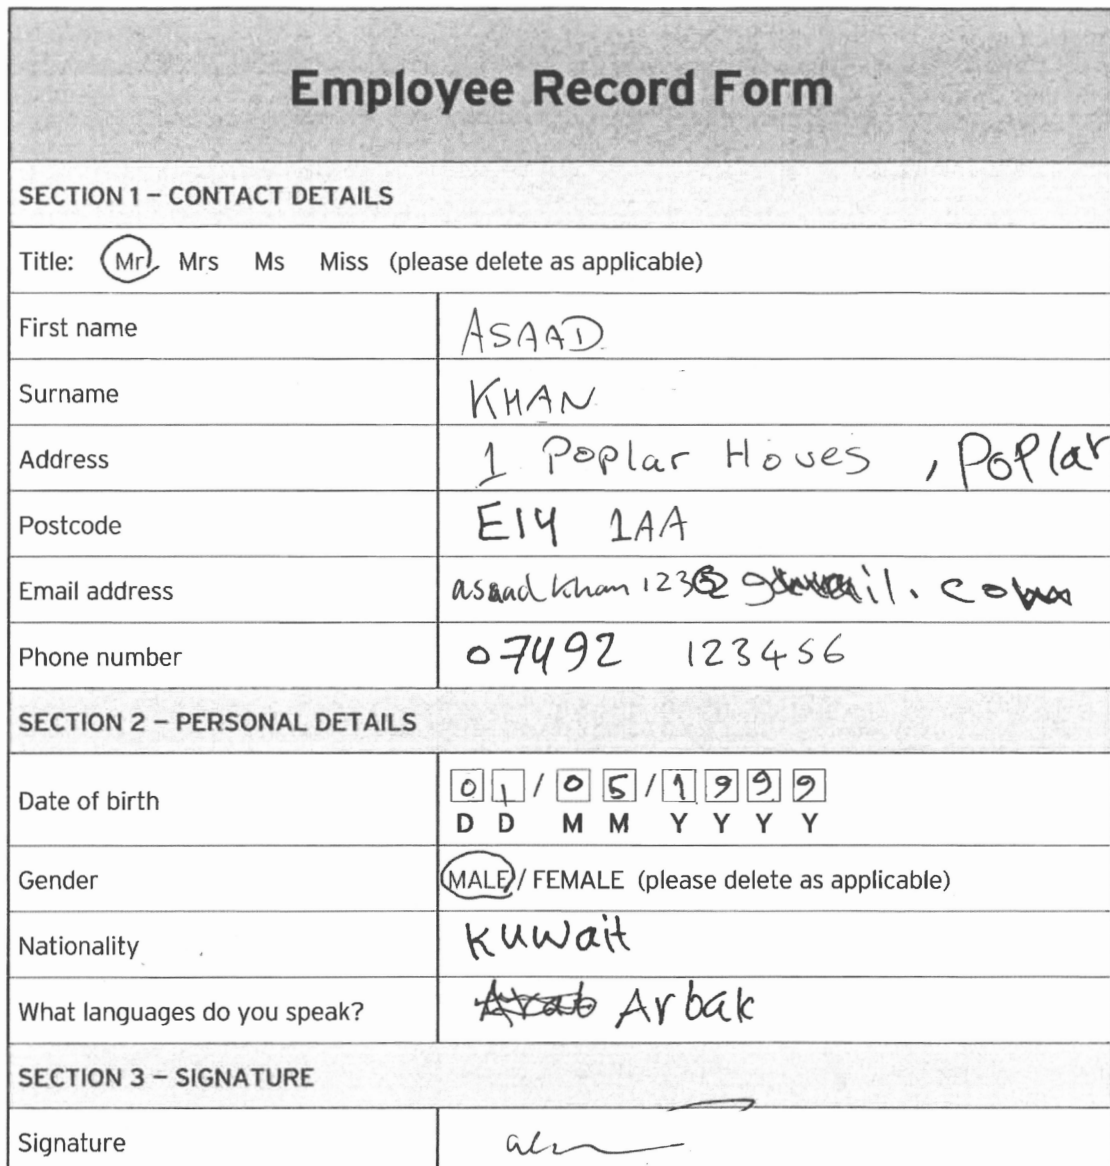 Employee Record Form
SECTION 1 – CONTACT DETAILS
Title: Mr Mrs Ms Miss (please delete as applicable)
First name ASAAD
Surname KHAN
Address 1 Poplar Houes , Poplar
Postcode E14 1AA
Email address asaadkhan123@gmail.com
Phone number 07492 123456
SECTION 2 – PERSONAL DETAILS
Date of birth 01/05/1999
D D M M Y Y Y Y
Gender MALE / FEMALE (please delete as applicable)
Nationality Kuwait
What languages do you speak? Arab Arbak
SECTION 3 – SIGNATURE
Signature